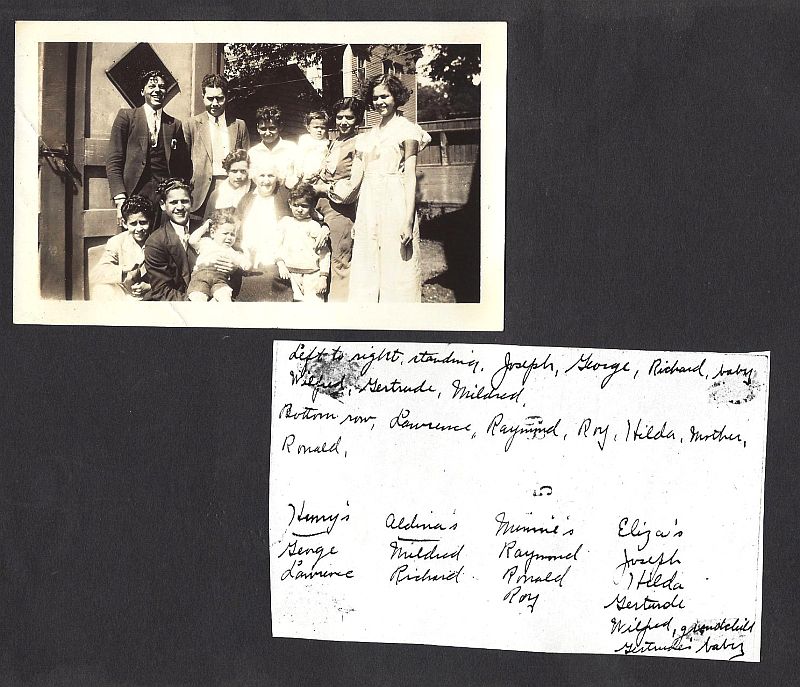 Left to right, standing, Joseph, George, Richard, baby
Wilfred, Gertrude, Mildred.
Bottom row, Lawrence, Raymond, Roy, Hilda, Mother,
Ronald,
5
Henry's Aldina's Minnie's Eliza's
George Mildred Raymond Joseph
Lawrence Richard Ronald Hilda
Roy Gertrude
Wilfred, grandchild
Gertrude's baby